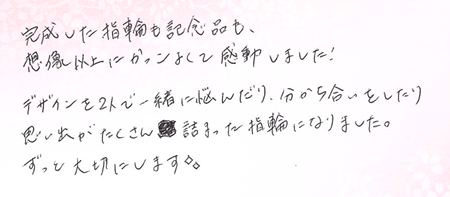 完成した指輪も記念品も、
想像以上にかっこよくて感動しました!
デザインを2人で一緒に悩んだり、分から合いをしたり
思い出がたくさん詰まった指輪になりました。
ずっと大切にします◇。